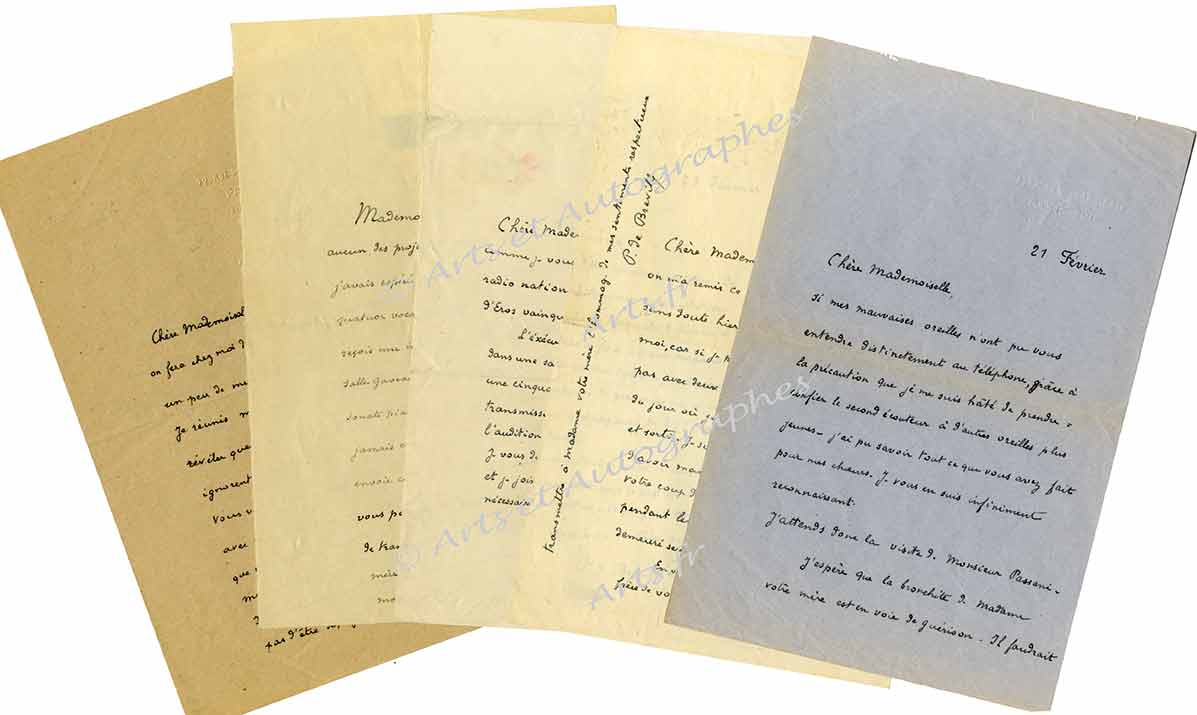 Chère Mademoisel
on fera chez moi d
un peu de mu
Je réunis m
révéler que
ignorent
vous v
avec
que
pas d'être
Mademoi
aucun des proj
j'avais espéré
quatuor voca
reçois une
salle Gavea
sonate pia
jamais
envoie c
vous p
de tran
mère
Chère Made
comme je vous
radio nation
d'Eros vainqu
L'exécu
dans une sa
une cinqu
transmissi
l'audition
je vous d
et je jois
nécessaire
transmettre à madame votre mère l'hommage de mes sentiments respectueux
P. de Bréville
Février
Chère Madem
on m'a remis ce
sans doute hier
moi, car si je p
pas avec deux
du jour où j
et sortez, je se
d'avoir man
votre coup d
pendant le
demeuré se
En
frère de vo
21 Février
Chère Mademoiselle,
si mes mauvaises oreilles n'ont pu vous
entendre distinctement au téléphone, grâce à
la précaution que je me suis hâté de prendre :
confier le second écouteur à d'autres oreilles plus
jeunes - j'ai pu savoir tout ce que vous avez fait
pour mes chœurs. Je vous en suis infiniment
reconnaissant.
J'attends donc la visite de Monsieur Passani -
J'espère que la bronchite de Madame
votre mère est en voie de guérison - Il faudrait
© Arts et Autographes
Arts.fr
© Arts et Autographes
Arts.fr